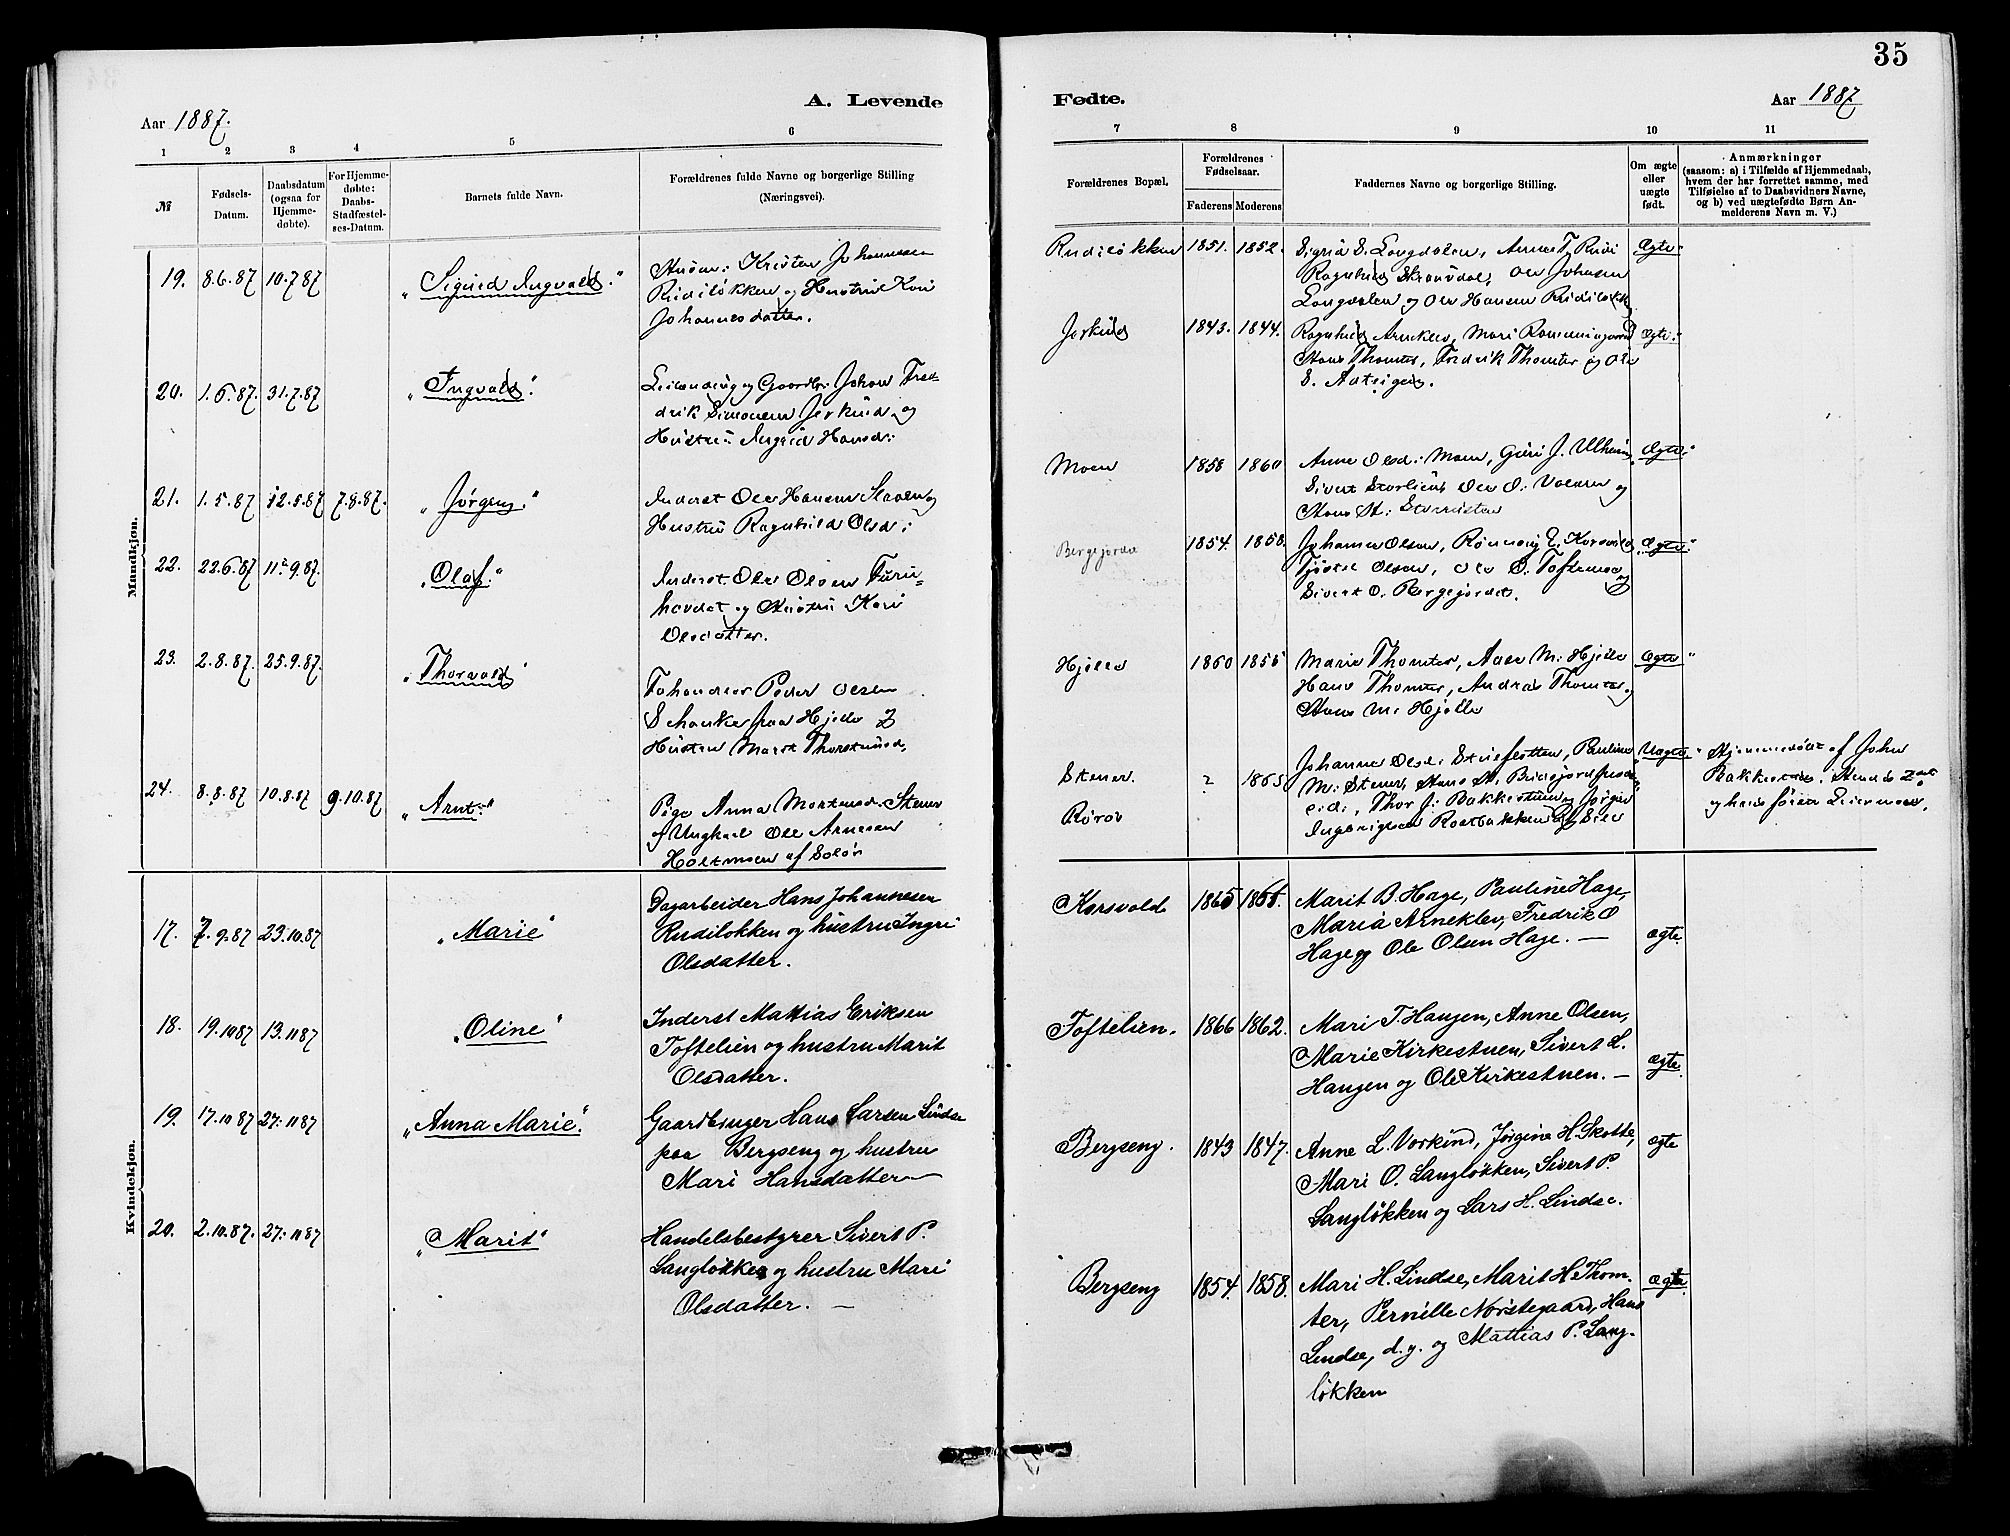 35
A. Levende
Fødte.
Aar 1887.
Aar 1887
1 2 3 4 5 6
7 8 9 10 11
№
Fødsels-
Datum.
Daabsdatum
(ogsaa for
Hjemme-
døbte).
For Hjemme-
døbte:
Daabs-
Stadfæstel-
ses-Datum.
Barnets fulde Navn.
Forældrenes fulde Navne og borgerlige Stilling
(Næringsvei).
Forældrenes Bopæl.
Forældrenes
Fødselsaar.
Faderens Moderens
Faddernes Navne og borgerlige Stilling.
Om ægte
eller
uægte
født.
Anmærkninger
(saasom: a) i Tilfælde af Hjemmedaab,
hvem der har forrettet samme, med
Tilføielse af to Daabsvidners Navne,
og b) ved uægtefødte Børn An-
melderens Navn m. V.)
Mandkjøn.
19. 8.6.87 10.7.87
"Sigurd Ingvald."
Kristen Johannesen
Rudiløkken og Hustru Kari
Johannesdatter.
Rudiløkken 1851. 1852.
Sigrid S. Longdalen, Anne T. Rudi
Ragnhild Skranvdal, Ole Johnsen
Longdalen og Ole Hansen Rudiløkk
Ægte."
20. 1.6.87. 31.7.87
"Ingvald."
Leilending og Gaardbr. Johan Fred-
drik Simonsen Jorkind og
Hustru Ingrid Hansd:
Jorkind 1843. 1844.
Ragnhild Arneklev, Mari
Hans Thomter, Fredrik Thomter og Ole
S.
Ægte."
21. 1.5.87 12.5.87 7.8.87.
"Jørgen."
Inderst Ole Hansen og
Hustru Ragnhild Olsd:
Moen 1858 1860
Anne Olsd: Moen, Guri J. Ulheim
Sivert Storlien, Ole O. og
Hans
Ægte."
22. 22.6.87 11.9.87.
"Olaf."
Inderst Ole Olsen Furu-
hovdet og Hustru Kari
Olsdatter.
Bergejordet 1854. 1858.
Johanne Olsen, Rønnaug E. Korsvold
Tjøstel Olsen, Ole S. Toftemoen og
Sivert O. Bergejordet.
"Ægte."
23. 2.8.87. 25.9.87.
"Thorvald"
Peder Olsen
Schanke fra Hjelle &
Hustru Marit Thorstensd.
Hjelle 1860 1855
Marie Thomter, M. Hjelle
Hans Thomter, Andreas Thomter og
Hans M. Hjelle
Ægte"
24. 8.8.87 10.8.87 9.10.87
"Arnt."
Pige Anna Mortensd. Stener
af Ungkarl Ole Arnesen
Holtmoen af Solør
Stener.
Røros
? 1865
Johanne Olsd. Stuefletten, Pauline
M. Stener, Hans
Thor J. Bakkestuen og Jørgen
Uægte"
Hjemmedøbt af John
Bakkestuen.
Kvindekjøn.
17. 7.9.87 23.10.87
"Marie"
Dagarbeider Hans Johannesen
Rudiløkken og hustru Ingri
Olsdatter.
Korsvold 1865 1865.
Marit B. Hage, Pauline Hage,
Maria Arneklev, Fredrik O
Hage og Ole Olsen Hage. —
ægte.
18. 19.10 87 13.11 87
"Oline"
Inderst Mattias Eriksen
Toftelien og hustru Marit
Olsdatter.
Toftelien. 1866 1862.
Mari T. Haugen, Anne Olsen,
Marie Kirkestuen, Sivert L.
Haugen og Ole Kirkestuen. —
ægte.
19. 17.10 87 27.11 87
"Anna Marie."
Gaardbruger Hans Larsen Lindse
paa Bergseng og hustru
Mari Hansdatter —
Bergseng. 1843 1847.
Anne L. Vorkind, Jørgine H. Skotte,
Mari O. Langløkken, Sivert P.
Langløkken og Lars H. Lindse.
ægte
20. 2.10.87. 27.11 87
"Marit"
Handelsbestyrer Sivert P.
Langløkken og hustru Mari
Olsdatter. —
Bergseng 1854. 1858.
Mari H. Lindse, Marit H. Thom-
ter, Pernille Norstegaard, Hans
Lindse, d.y. og Mattias P. Lang-
løkken
ægte.